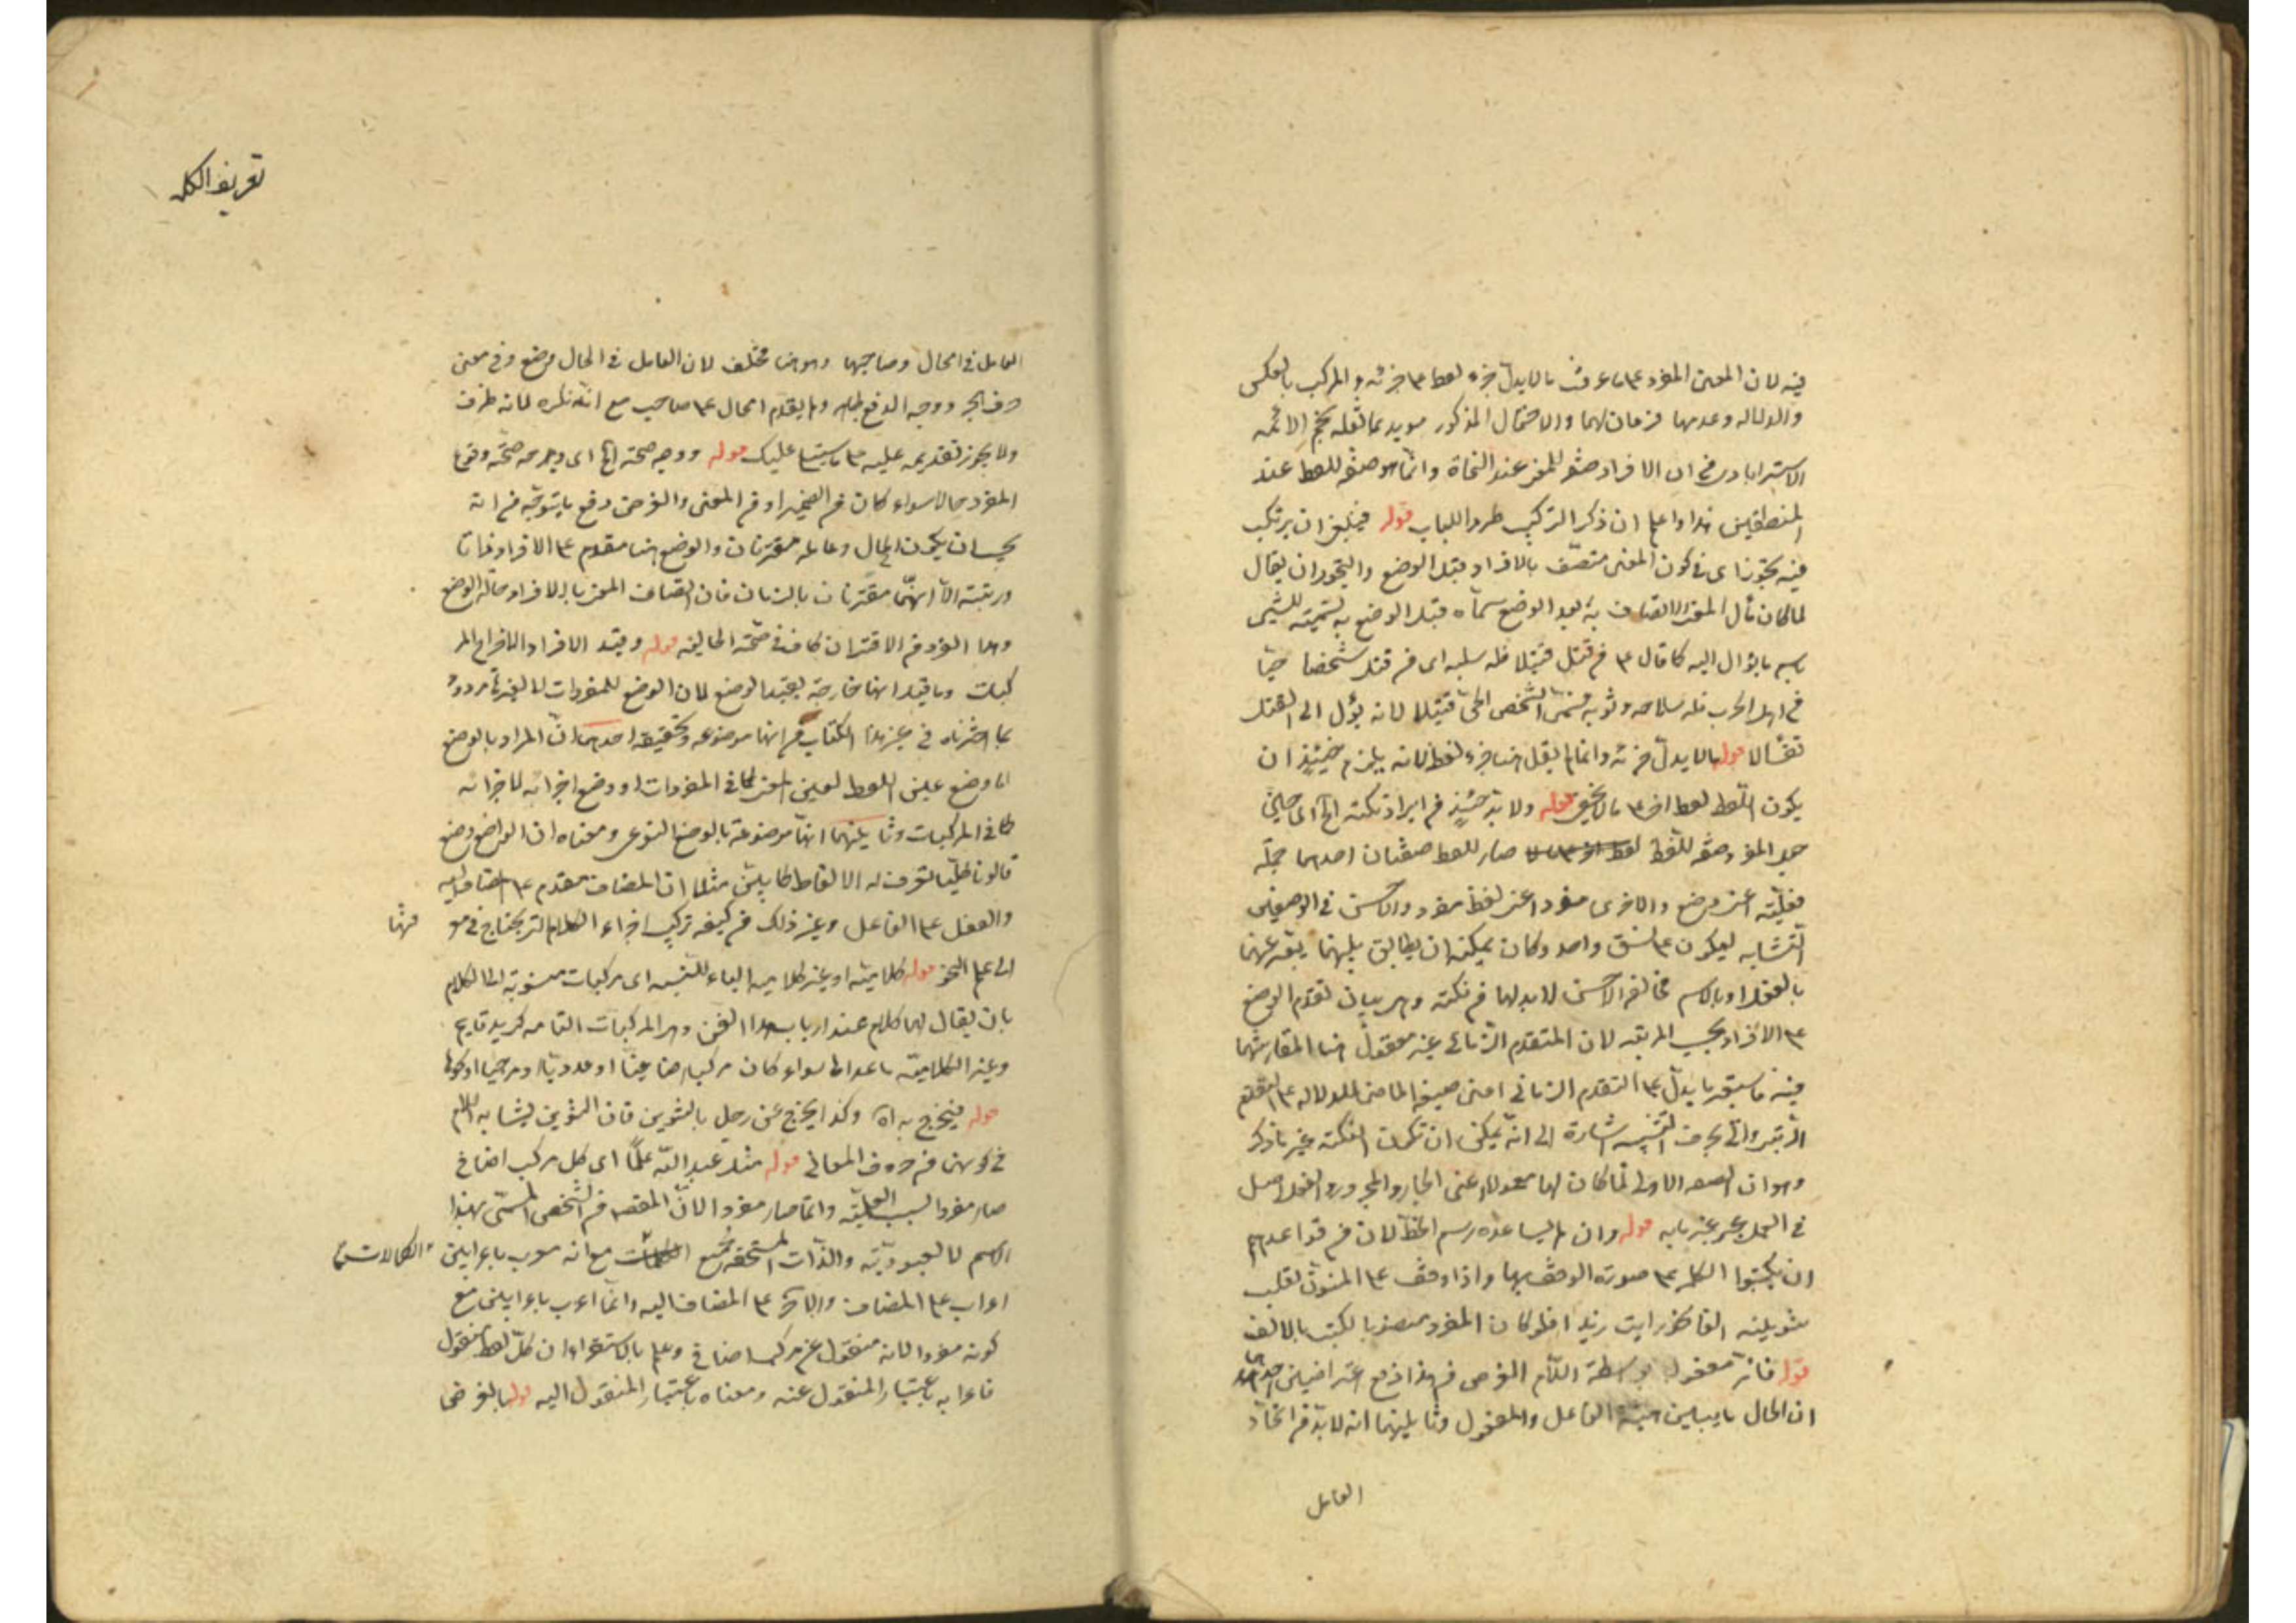 فيه لان المعنى المفرد على ما عرفت ما لا يدل جزء لفظه على جزئه والمركب بالعكس
والدلاله وعدمها فرعان لهما والاحتمال المذكور مويد بما نقله نجم الائمه
الاسترابادى من ان الافراد صفة للمعنى عند النحاة وانما هو صفة للفظ عند
المنطقيين هذا واعلم ان ذكر التركيب طردا للباب قوله فينبغى ان يرتكب
فيه تجوز اى فى كون المعنى متصف بالافراد قبل الوضع والتجوز ان يقال
لما كان مآل المعنى الاتصاف به بعد الوضع سماه قبل الوضع به تسمية للشيئ
باسم ما يؤل اليه كما قال ع م من قتل قتيلا فله سلبه اى من قتل شخصا حيّا
فى اهل الحرب فله سلاحه وثوبه فسمى الشخص الحى قتيلا لانه يؤل الى القتل
تفألا قوله ما لا يدل جزئه وانما لم يقل هنا جزء لفظه لانه يلزم حينئذ ان
يكون للفظ لفظ اخر على ما لا يخفى قوله ولا بد حينئذ من ايراد نكتة الخ اى حين
جعل المفرد صفة للفظ صار للفظ صفتان احدهما جملة
فعليّة اعنى وضع والاخرى مفرد اعنى لفظ مفرد والاحسن فى الوصفين
التشابه ليكون على نسق واحد وكان يمكنه ان يطابق بينهما بتعبيرهما
بالفعل او بالاسم فمخالفة الاحسن لا بد لها من نكتة وهى بيان تقدم الوضع
على الافراد بحسب المرتبه لان المتقدم الزمانى غير معقول هنا لمقارنتهما
فيه فاستعير ما يدل على التقدم الزمانى اعنى صيغة الماضى للدلاله على التقدم
الرتبى واتى بحرف التنبيه اشارة الى انه يمكن ان تكون النكته غير ما ذكر
وهو ان الصفه الاولى لما كان لها معمولا اعنى الجار والمجرور والفعل اصل
فى العمل عبر عنها به قوله وان لم يساعده رسم الخط لان من قواعدهم
ان يكتبوا الكلمه على صورة الوقف بها واذا وقف على المنون تقلب
تنوينه الفا نحو رايت زيدا فلو كان المفرد منصوبا لكتب بالالف
قوله فانه مفعول بواسطة اللام الغرض من هذا دفع اعتراضين احدهما
ان الحال ما يبين هيئة الفاعل والمفعول وثانيهما انه لا بد من اتحاد
العامل
تعريف الكلمه
العامل فى الحال وصاحبها وهو هنا مختلف لان العامل فى الحال وضع وفى معنى
حرف الجر ووجه الدفع ظاهر ولم يقدم الحال على صاحبه مع انه نكره لانه ظرف
ولا يجوز تقديمه عليه على ما سيتلى عليك قوله ووجه صحته الخ اى وجه صحة وقوع
المفرد حالا سواء كان من الضمير او من المعنى والغرض دفع ما يتوجه من انه
يجب ان يكون الحال وعامله مقترنان والوضع هنا مقدم على الافراد ذاتا
ورتبة الا انهما مقترنان بالزمان فان اتصاف المعنى بالافراد حالة الوضع
وهذا القدر من الاقتران كاف فى صحة الحاليه قوله وقيد الافراد لاخراج المر
كبات وما قيل انها خارجة بقيد الوضع لان الوضع للمفردات لا لغيرها مردود
بما اخترناه فى غير هذا الكتاب من انها موضوعه وتحقيقه احدهما ان المراد بالوضع
اما وضع عين اللفظ لعين المعنى كما فى المفردات او وضع اجزائه لاجزائه
كما فى المركبات وثانيهما انها موضوعة بالوضع النوعى ومعناه ان الواضع وضع
قانونا كليا تعرف به الالفاظ كما بين مثلا ان المضاف مقدم على المضاف اليه
والفعل على الفاعل وغير ذلك من كيفية تركيب اجزاء الكلام التى يحتاج فى معرفتها
الى علم النحو قوله كلامية او غير كلاميه الياء للنسبه اى مركبات منسوبة الى الكلام
بان يقال لها كلام عند ارباب هذا الفن وهى المركبات التامه كزيد قايم
وغير الكلامية ما عداها سواء كان مركبا اضافيا او عدديا او مزجيا او نحوها
قوله فيخرج به اه وكذا يخرج عن رجل بالتنوين فان التنوين يشابه اللام
فى كونها من حروف المعانى قوله مثل عبد الله علما اى كل مركب اضافى
صار مفردا لسبب العلميّة وانما صار مفردا لان المقصود من الشخص المسمّى بهذا
الاسم لا العبوديّة والذات المستحقة لجميع الكمالات مع انه معرب باعرابين
اعراب على المضاف والاخر على المضاف اليه وانما اعرب باعرابين مع
كونه مفردا لانه منقول عن مركب اضافى وعلم بالاستقراء ان كل لفظ منقول
فاعرابه باعتبار المنقول عنه ومعناه باعتبار المنقول اليه قوله بالغرض